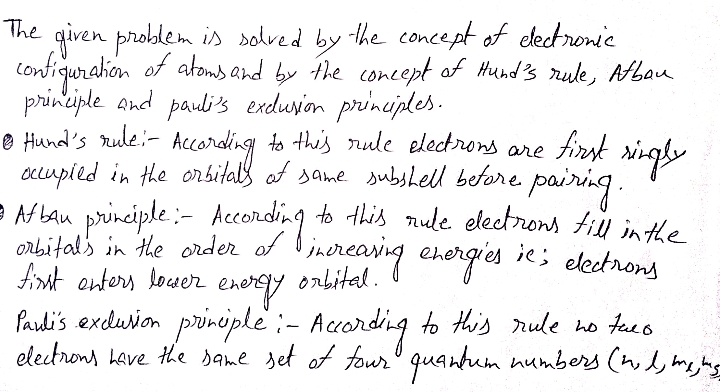 The given problem is solved by the concept of electronic
configuration of atoms and by the concept of Hund's rule, Afbau
principle and pauli's exclusion principles.
Hund's rule:- According to this rule electrons are first singly
occupied in the orbitals of same subshell before pairing.
Afbau principle:- According to this rule electrons fill in the
orbitals in the order of increasing energies ie; electrons
first enters lower energy orbital.
Pauli's exclusion principle:- According to this rule no two
electrons have the same set of four quantum numbers (n, l, ml, ms